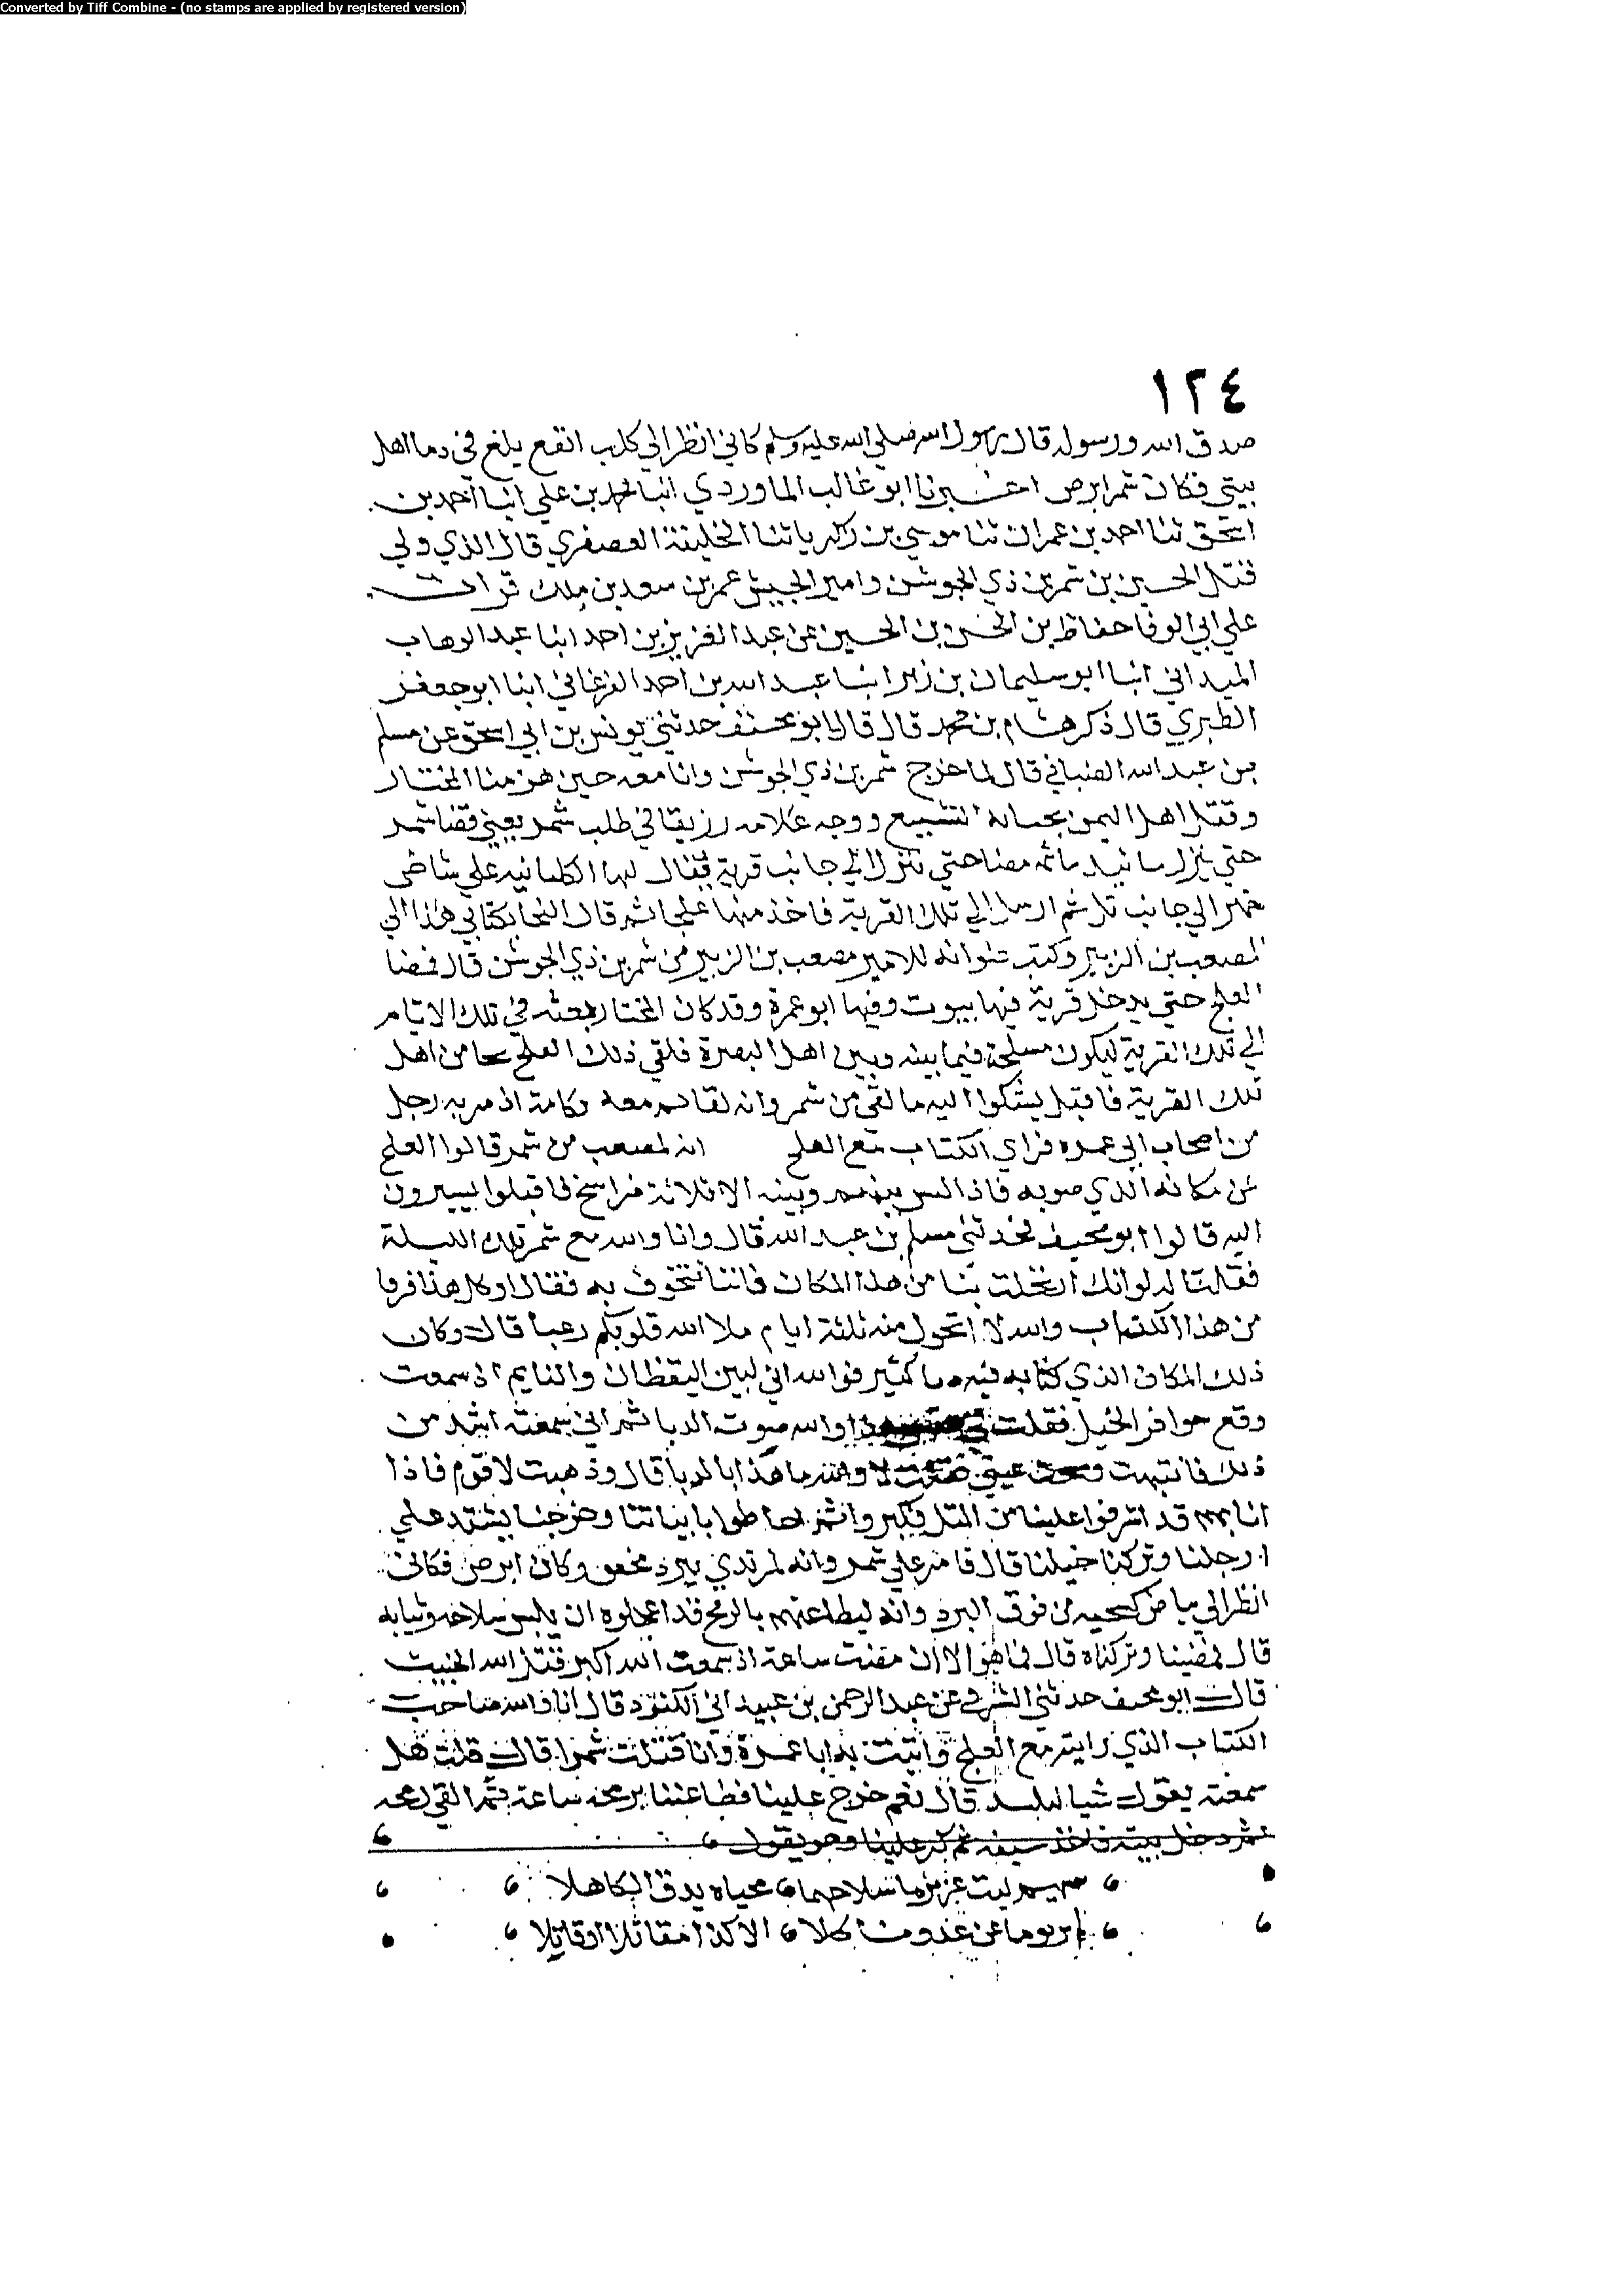 Converted by Tiff Combine - (no stamps are applied by registered version)
١٢٤
صدق الله ورسوله قال رسول الله صلي الله عليه وسلم كاني انظر الي كلب ابقع يلغ في دما اهل
بيتي فكان شمر ابرص اخبرنا ابو غالب الماوردي انبا محمد بن علي انبا احمد بن
اسحق ثنا احمد بن عمران ثنا موسي بن زكريا ثنا الخليفة العصفري قال الذي ولي
قتل الحسين بن شمر بن ذي الجوشن وامير الجيش عمر بن سعد بن ملك قرات
علي ابي الوفا حفاظ بن الحسن بن الحسين عن عبد العزيز بن احمد انبا عبد الوهاب
الميداني انبا ابو سليمان بن زبر انبا عبد الله بن احمد الفرغاني انبا ابو جعفر
الطبري قال ذكر هشام بن محمد قال قال ابو مخنف حدثني يونس بن ابي اسحق عن مسلم
بن عبد الله الضبابي قال لما خرج شمر بن ذي الجوشن وانا معه حين هزمنا المختار
وقتل اهل اليمن بجبانة السبيع ووجه غلامه رزيقا في طلب شمر يعني فضا شمر
حتي ينزل ساتيدما ثم مضا حتي نزل الي جانب قرية يقال لها الكلبانيه علي شاطي
نهر الي جانب تل ثم ارسل الي تلك القرية فاخذ منها علجا ثم قال النجا بكتابي هذا الي
المصعب بن الزبير وكتب عنوانه للامير مصعب بن الزبير من شمر بن ذي الجوشن قال فمضا
العلج حتي يدخل قرية فيها بيوت وفيها ابو عمرة وقد كان المختار بعثه في تلك الايام
الي تلك القرية ليكون مسلحة فيما بينه وبين اهل البصرة فلقي ذلك العلج علجا من اهل
تلك القرية فاقبل يشكوا اليه ما لقي من شمر وانه لقائم معه يكلمه اذ مر به رجل
من اصحاب ابي عمره فراي الكتاب مع العلج انه لمصعب من شمر قالوا العلج
عن مكانه الذي هو به فاذا ليس بينهم وبينه الا ثلاثة فراسخ فاقبلوا يسيرون
اليه قالوا ابو مخنف فحدثني مسلم بن عبد الله قال وانا والله مع شمر تلك الليلة
فقلنا له لو انك ارتحلت بنا من هذا المكان فاننا نتخوف به فقال او كل هذا فرقا
من هذا الكذاب والله لا اتحول منه ثلثة ايام ملا الله قلوبكم رعبا قال وكان
ذلك المكان الذي كنا به فيه دبا كثير فوالله اني لبين اليقظان والنايم اذ سمعت
وقع حوافر الخيل فقلت والله صوت الدبا ثم اني سمعته اشد من
ذلك فانتبهت ومسحت عيني فقلت لا والله ما هذا بالدبا قال وذهبت لاقوم فاذا
انا بهم قد اشرفوا علينا من التل فكبروا ثم احاطوا بابياتنا وخرجنا يشتد علي
ارجلنا وتركنا خيلنا قال فامر علي شمر وانه لمرتدي ببرد محقق وكان ابرص فكاني
انظر الي بياض كشحيه من فوق البرد وانه ليطاعنهم بالرمح قد اعجلوه ان يلبس سلاحه وثيابه
قال فمضينا وتركناه قال فما هو الا ان مضت ساعة اذ سمعت الله اكبر قتل الله الخبيث
قال ابو مخنف حدثني المشرقي عن عبد الرحمن بن عبيد ابي الكنود قال انا والله صاحب
الكتاب الذي رايته مع العلج واتيت به ابا عمرة وانا قتلت شمرا قال قلت هل
سمعته يقول شيا ليلتيذ قال نعم خرج علينا فطاعننا برمحه ساعة ثم القي رمحه
ثم دخل بيته فاخذ سيفه ثم كر علينا وهو يقول
ليث عزيز ما سلاحما محياه يدق الكاهلا
لم ير يوما عن عدو ناكلا الا كذا مقاتلا او قاتلا